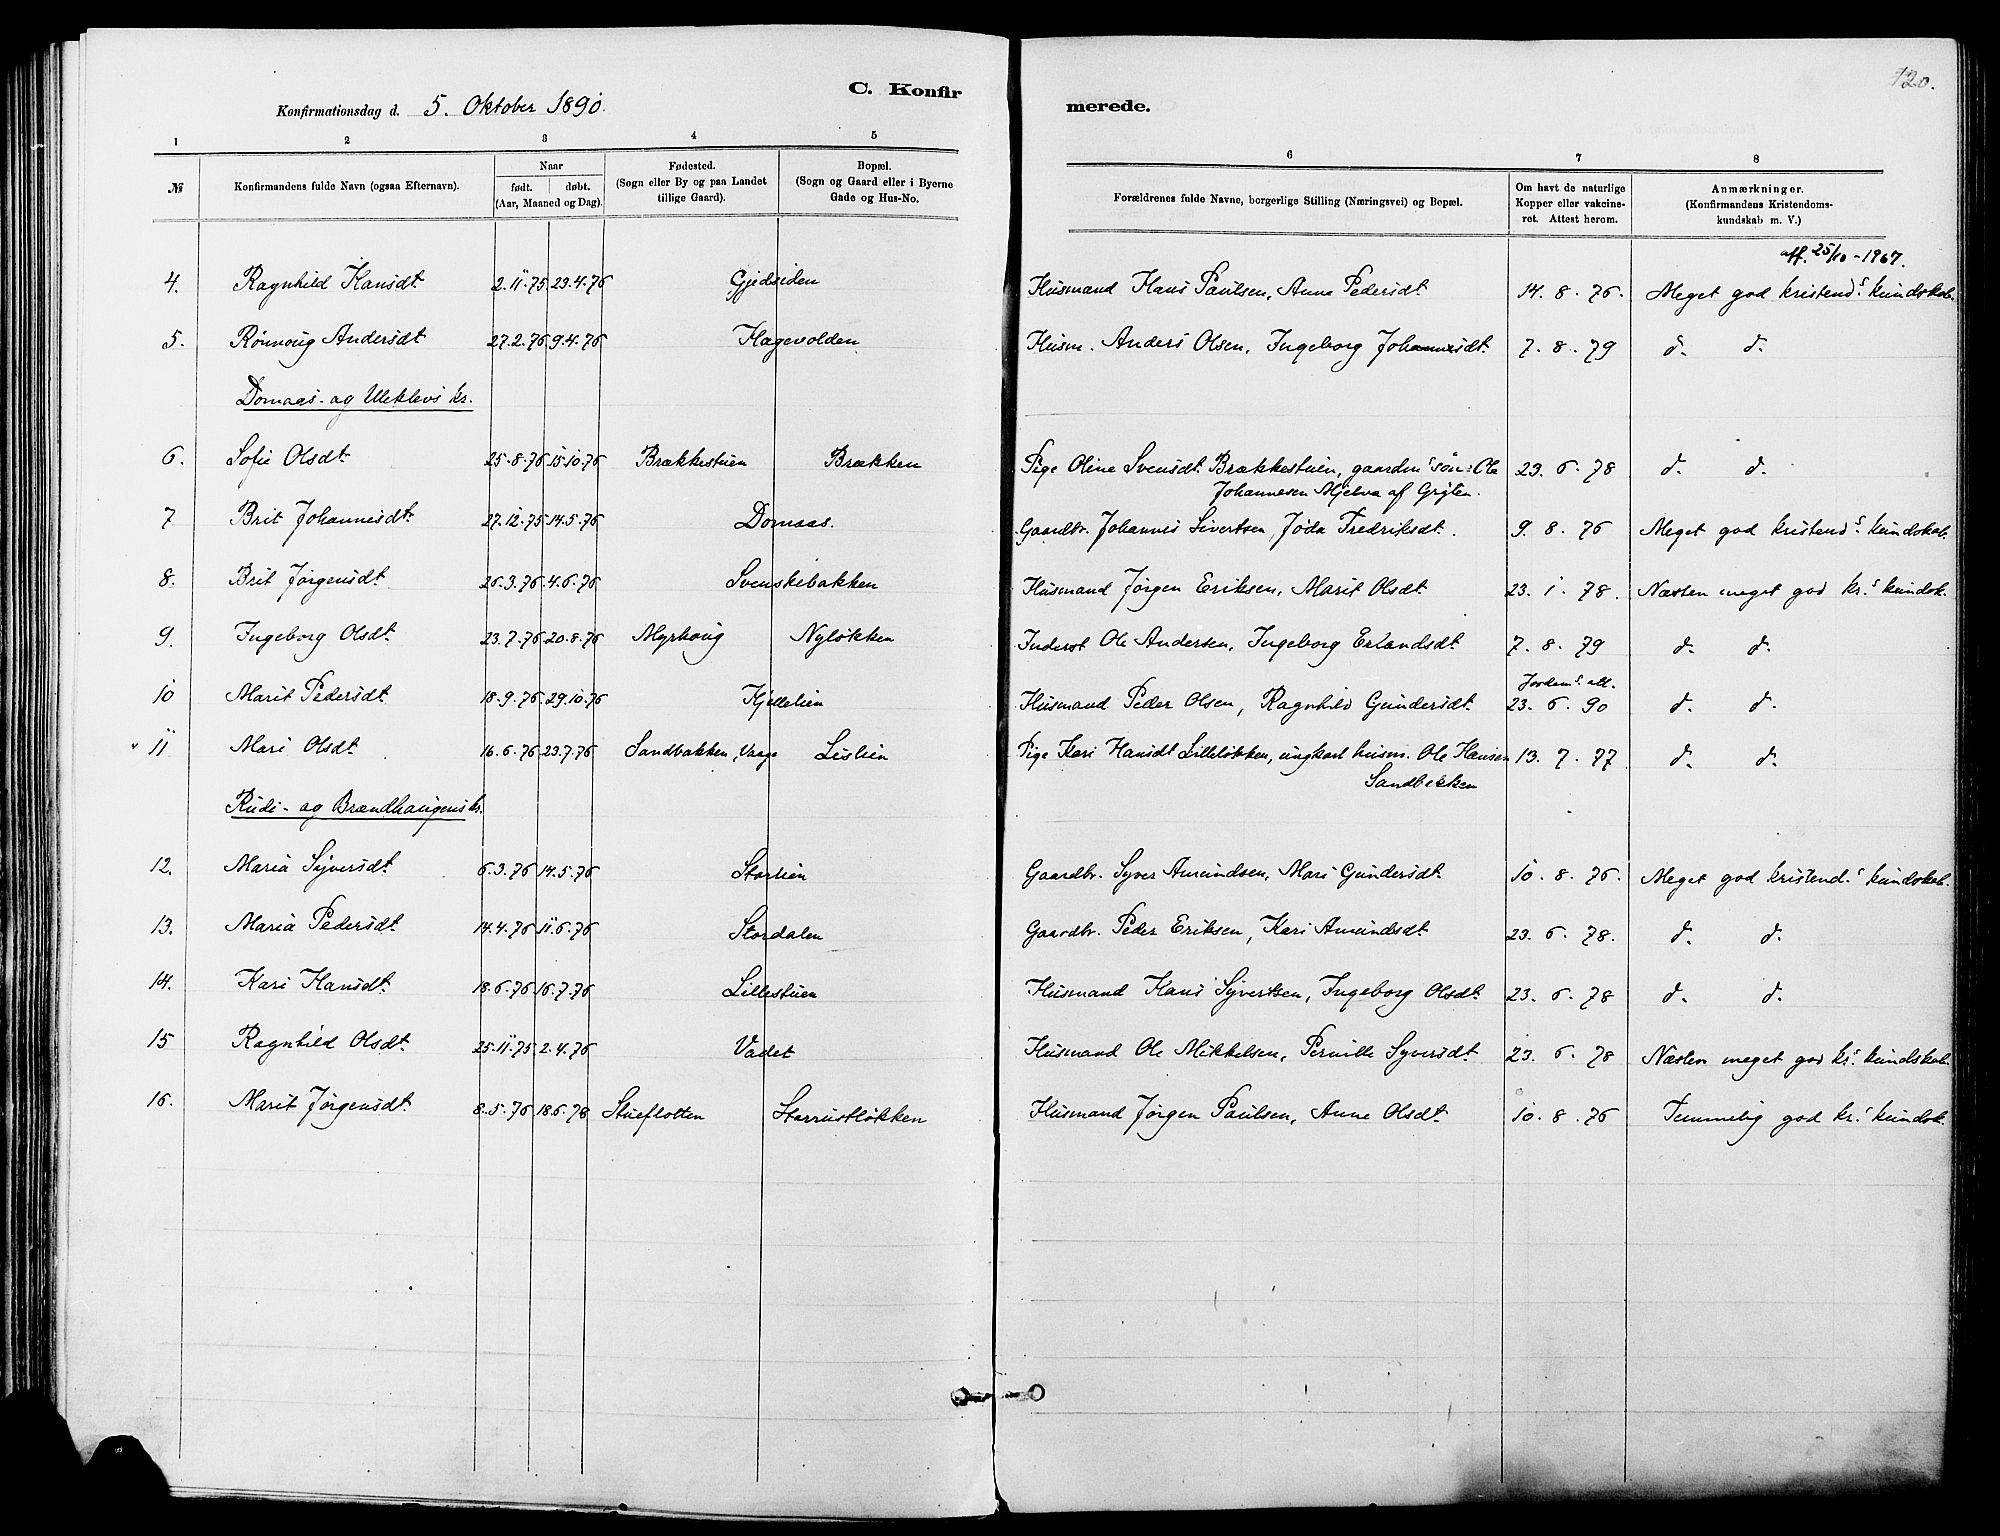 120.
C. Konfirmerede.
Konfirmationsdag d. 5. Oktober 1890.
1 2 3 4 5 6 7 8
№ Konfirmandens fulde Navn (ogsaa Efternavn). Naar født. døbt. (Aar, Maaned og Dag). Fødested. (Sogn eller By og paa Landet tillige Gaard). Bopæl. (Sogn og Gaard eller i Byerne Gade og Hus-No. Forældrenes fulde Navne, borgerlige Stilling (Næringsvei) og Bopæl. Om havt de naturlige Kopper eller vakcineret. Attest herom. Anmærkninger. (Konfirmandens Kristendomskundskab m. V.)
att. 25/10-1967.
4. Ragnhild Hansdt. 2.11.75 23.4.76 Gjedsiden Husmand Hans Paulsen, Anne Pedersdt. 14. 8. 76. Meget god kristends kundskab.
5. Rønnoug Andersdt. 27.2.76 9.4.76 Hagevolden Husm. Anders Olsen, Ingeborg Johannesdt. 7. 8. 79 d. d.
Domaas- og Uleklevs kr.
6. Sofie Olsdt. 25.8.76 15.10.76 Brækkestuen Brækken Pige Oline Svensdt. Brækkestuen, gaardms søn: Ole 23. 6. 78 d. d.
Johannesen Mjelva af Gryten.
7 Brit Johannesdt. 27.12.75 14.5.76 Domaas. Gaardbr. Johannes Sivertsen, Joda Fredriksdt. 9. 8. 76 Meget god kristends kundskab.
8. Brit Jørgensdt. 26.3.76 4.6.76 Svenskebakken Husmand Jørgen Eriksen, Marit Olsdt. 23. 1. 78. Næsten meget god kr.s kundsk.
9. Ingeborg Olsdt. 23.7.76 20.8.76 Myrhoug Nyløkken Inderst Ole Andersen, Ingeborg Erlandsdt. 7. 8. 79 d. d.
Jordems. att.
10 Marit Pedersdt. 18.9.76 29.10.76 Kjellelien Husmand Peder Olsen, Ragnhild Gundersdt. 23. 6. 90 d. d.
11 Mari Olsdt. 16.6.76 23.7.76 Sandbakken, Vaage Lislien Pige Kari Hansdt. Lilleløkken, ungkarl husm. Ole Hansen 13. 7. 77 d. d.
Sandbakken
Rudi- og Brændhaugens kr.
12. Maria Syversdt. 6.3.76 14.5.76 Storlien Gaardbr. Syver Amundsen, Mari Gundersdt. 10. 8. 76. Meget god kristend.s kundskab.
13. Maria Pedersdt. 14.4.76 11.6.76 Stordalen Gaardbr. Peder Eriksen, Kari Amundsdt. 23. 6. 78. d. d.
14. Kari Hansdt. 18.6.76 16.7.76 Lillestuen Husmand Hans Syvertsen, Ingeborg Olsdt. 23. 6. 78 d. d.
15 Ragnhild Olsdt. 25.11.75 2.4.76 Vadet Husmand Ole Mikkelsen, Pernille Syversdt. 23. 6. 78 Næsten meget god kr.s kundskab.
16. Marit Jørgensdt. 8.5.76 18.6.78 Stueflotten Storrustløkken Husmand Jørgen Paulsen, Anne Olsdt. 10. 8. 76 Temmelig god kr.s kundsk.